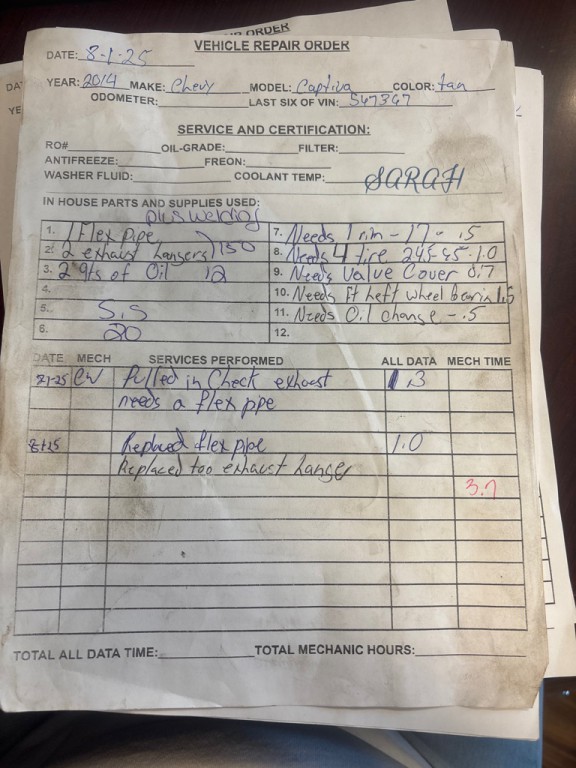 IR ORDER
DA
YE
VEHICLE REPAIR ORDER
DATE: 8-1-25
YEAR: 2014 MAKE: Chevy MODEL: Captiva COLOR: tan
ODOMETER: LAST SIX OF VIN: 547367
SERVICE AND CERTIFICATION:
RO# OIL-GRADE: FILTER:
ANTIFREEZE: FREON:
WASHER FLUID: COOLANT TEMP: SARAH
IN HOUSE PARTS AND SUPPLIES USED:
plus welding
1. 1 flex pipe 7. Needs 1 rim - 17 - .5
2. 2 exhaust hangers 150 8. Needs 4 tire 245-45- 1.0
3. 2 qts of Oil 12 9. Needs Valve Cover 0.7
4. 10. Needs ft left wheel bearin 1.5
5. S.S 11. Needs Oil change - .5
6. 20 12.
DATE MECH SERVICES PERFORMED ALL DATA MECH TIME
CW Pulled in Check exhaust .3
needs a flex pipe
Replaced flex pipe 1.0
Replaced too exhaust hanger
TOTAL ALL DATA TIME: TOTAL MECHANIC HOURS: